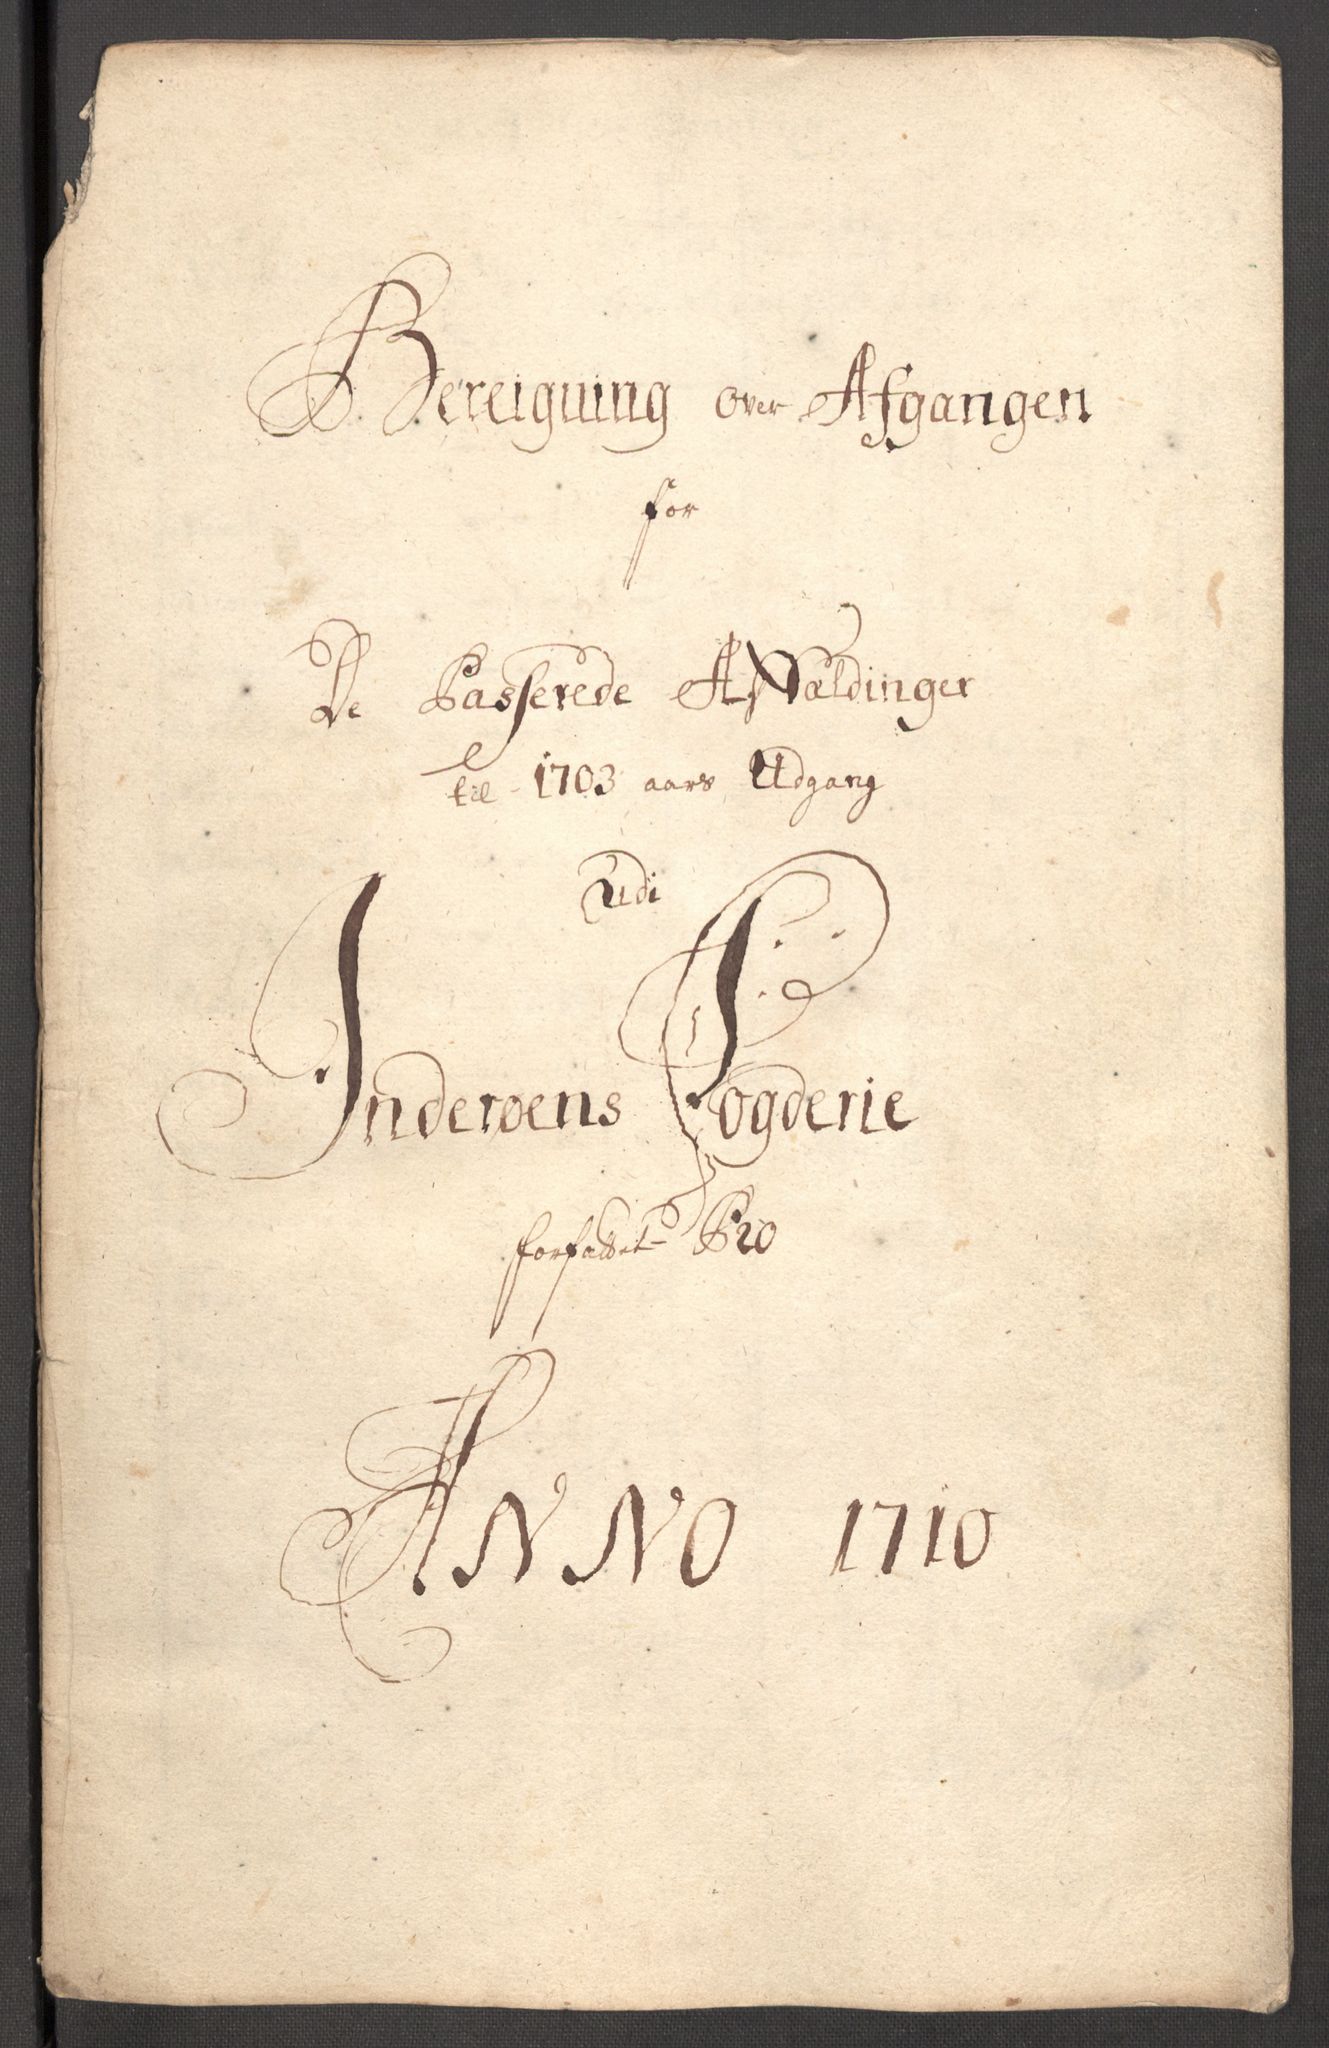 Bereigning over Afgangen
for
De Passerede Afvældinger
til 1703 aars Udgang
udi
Inderøens Fogderie
forfattet Pro
ANNO 1710